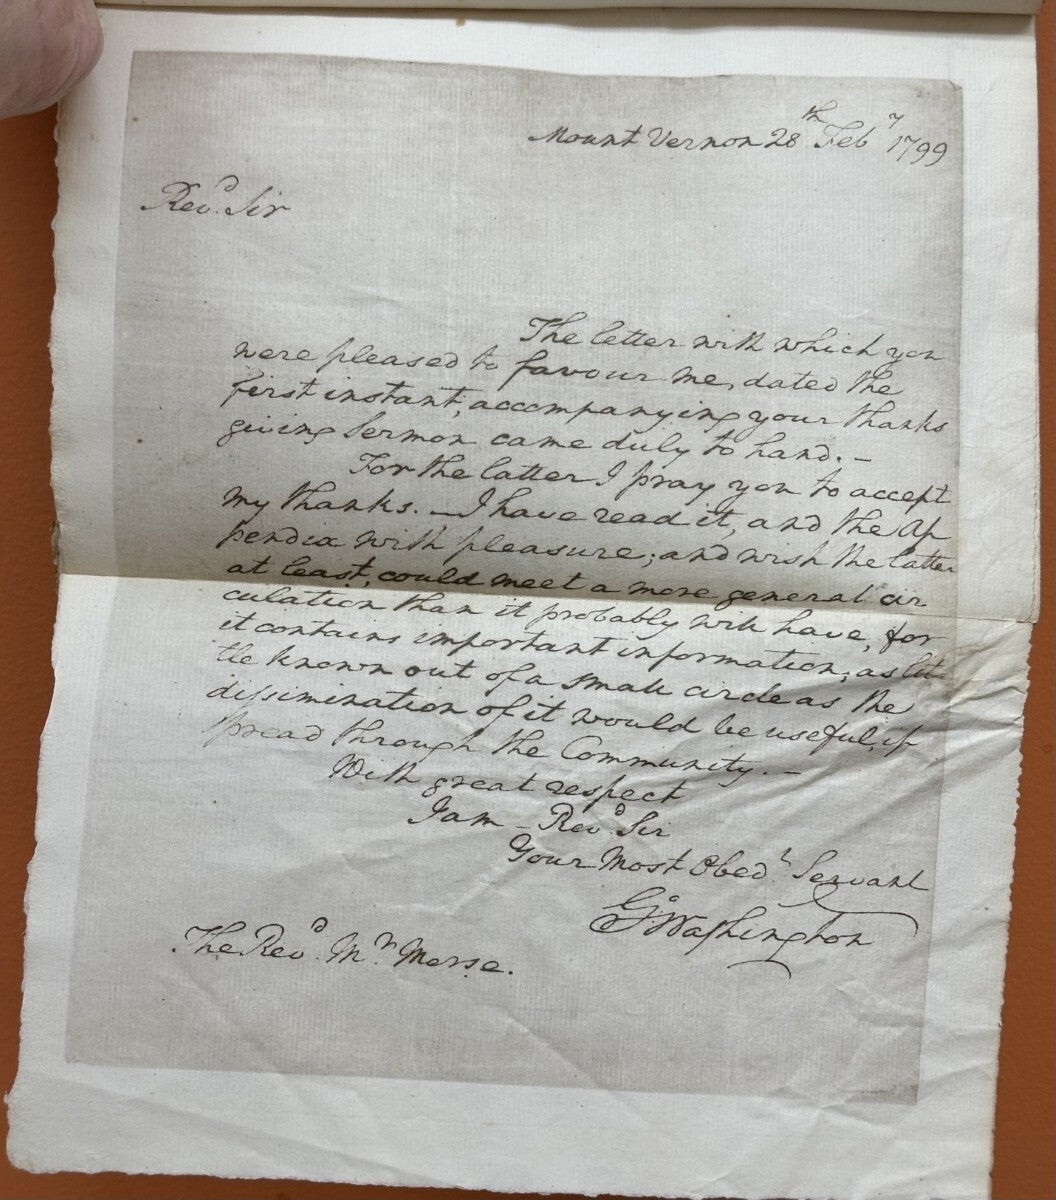 Mount Vernon 28th Feby 1799
Revd. Sir
The letter with which you
were pleased to favour me, dated the
first instant, accompanying your thanks
giving Sermon came duly to hand.—
For the latter I pray you to accept
my thanks.—I have read it, and the Ap
pendix with pleasure; and wish the latter
at least, could meet a more general cir
culation than it probably will have, for
it contains important information, as lit
tle known out of a small circle as the
dissimination of it would be useful, if
spread through the Community.—
With great respect
I am – Revd. Sir
Your Most Obedt. Servant
Go: Washington
The Revd. Mr Morse.